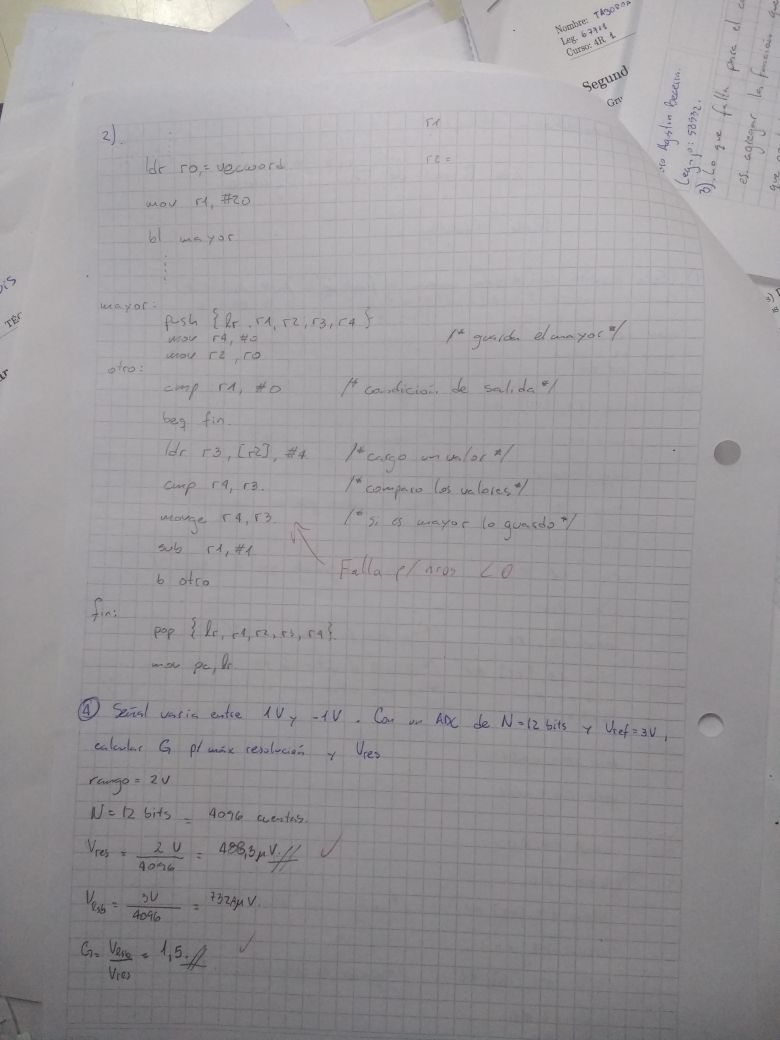 Nombre: TABORDA
Leg. 67911
Curso: 4R 1
Segund
Gru
Agustin Becerra.
Legajo: 58992.
3). Lo que falla para el c
es agregar la funcion
que
2).
r1
ldr r0,=vecword
r2=
mov r1, #20
bl mayor
mayor:
push {lr, r1, r2, r3, r4}
mov r4, #0 /* guarda el mayor */
mov r2, r0
otro:
cmp r1, #0 /* condición de salida */
beq fin.
ldr r3, [r2], #4 /* cargo un valor */
cmp r4, r3. /* comparo los valores */
movge r4, r3. /* si es mayor lo guardo */
sub r1, #1
Falla p/ nros < 0
b otro
fin:
pop {lr, r1, r2, r3, r4}
mov pc, lr
④ Señal varia entre 1V y -1V. Con un ADC de N=12 bits y Vref=3V,
calcular G p/ máx resolución y Vres
rango = 2V
N=12 bits = 4096 cuentas.
Vres = 2V/4096 = 488,3μV. ✓
Vlsb = 3V/4096 = 732,4μV.
G= Vlsb/Vres = 1,5. ✓